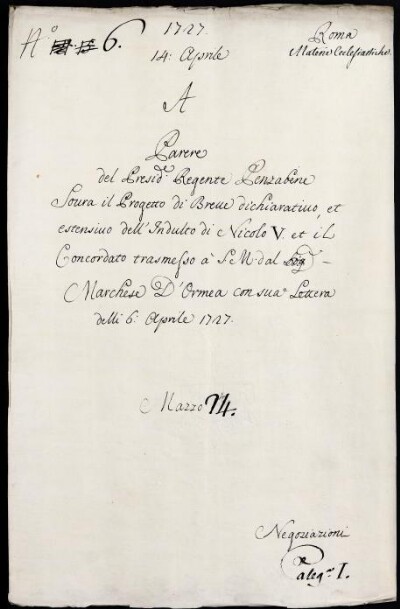 N.º 6.
1727.
14: Aprile
Roma
Materie Ecclesiastiche.
A
Parere
del Presid.te Regente Penzabene
Soura il Progetto di Breve dichiarativo, et
estensivo dell'Indulto di Nicolò V. et il
Concordato trasmesso a' S. M. dal
Marchese D'Ormea con sua Lettera
delli 6: Aprile 1727.
Mazzo 14.
Negoziazioni
Categ.a I.